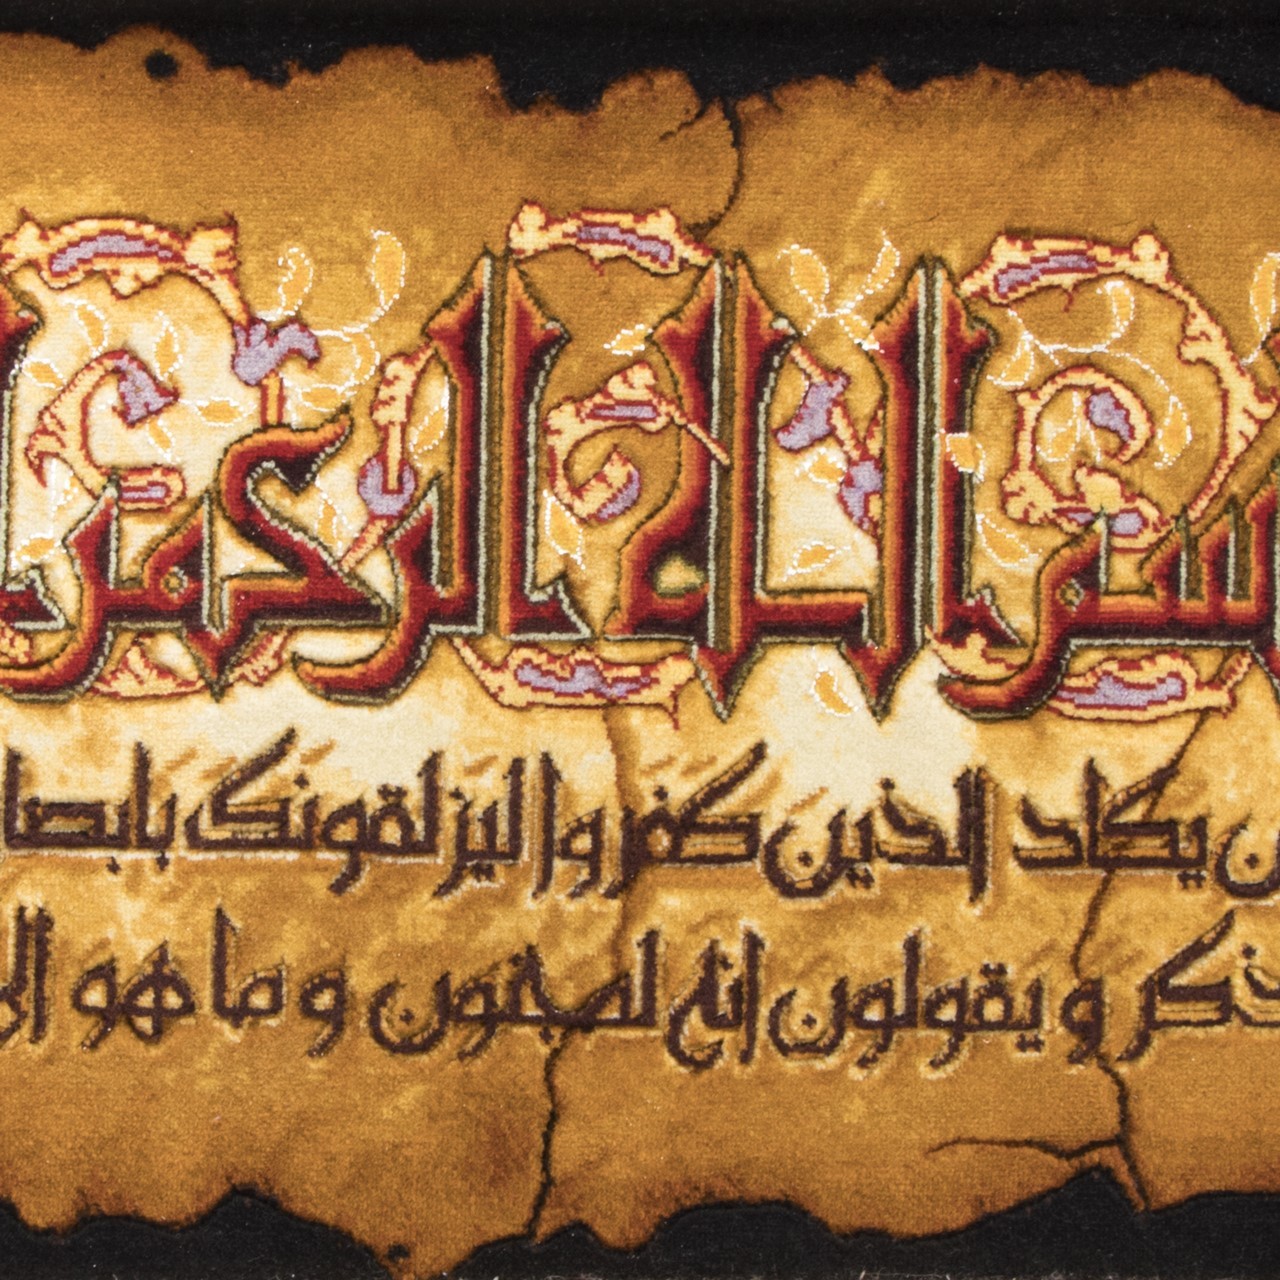 بسم الله الرحمن الرحيم
يكاد الذين كفروا ليزلقونك بابصا
ذكر و يقولون انه لمجنون و ما هو الا